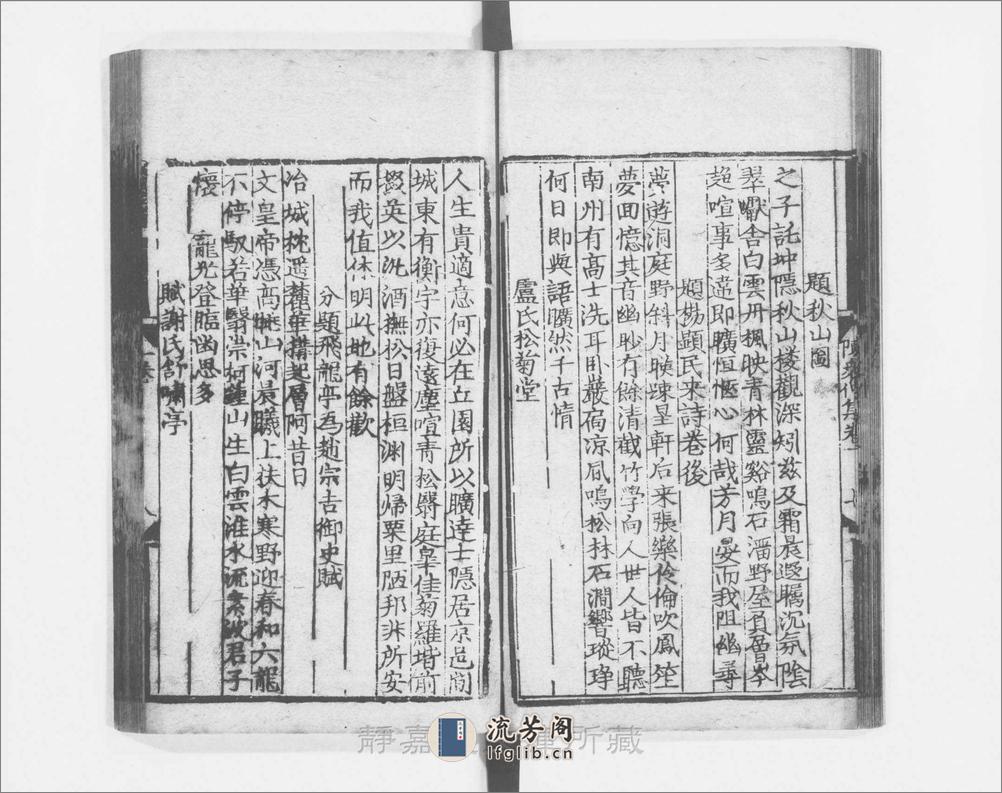 題秋山圖
之子託坤隱秋山樓觀深矧兹及霜晨遐矚沉氛陰
翠巘含白雲丹楓映青林靈谿鳴石溜野屋負層岑
超喧事多違即曠恒愜心何哉芳月晏而我阻幽尋
題楊顯民来詩卷後
夢遊洞庭野斜月映疎星軒后来張樂伶倫吹鳳笙
夢回憶其音幽眇有餘清截竹學向人世人皆不聽
南州有高士洗耳卧巖扃凉風鳴松林石澗響瑽琤
何日即與語曠然千古情
盧氏松菊堂
人生貴適意何必在丘園所以曠達士隱居京邑間
城東有衡宇亦復遠塵喧青松翳庭皐佳菊羅堦前
掇英以汎酒撫松日盤桓渊明歸栗里陋邦非所安
而我值休明此地有餘歡
分題飛龍亭爲趙宗吉御史賦
冶城枕遥麓華搆起層阿昔日
文皇帝憑高眺山河晨曦上扶木寒野迎春和六龍
不停馭若華翳崇柯鍾山生白雲淮水流素波君子
懷 寵光登臨幽思多
賦謝氏舒嘯亭
集卷一
卷一
靜嘉 所藏
流芳阁
lfglib.cn